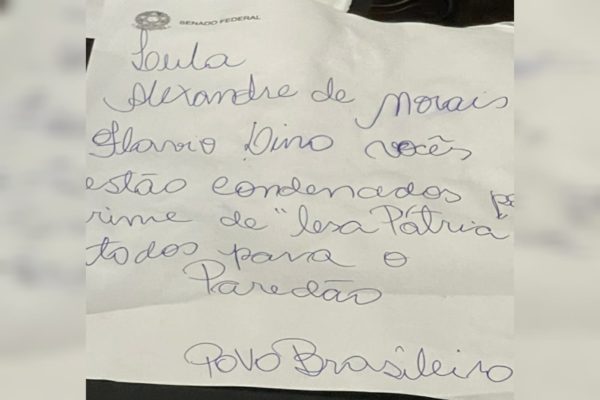 SENADO FEDERAL
Loula
Alexandre de Morais
Flavio Dino vocês
estão condenados
rime de "lesa Pátria
todos para o
Paredão
Povo Brasileiro